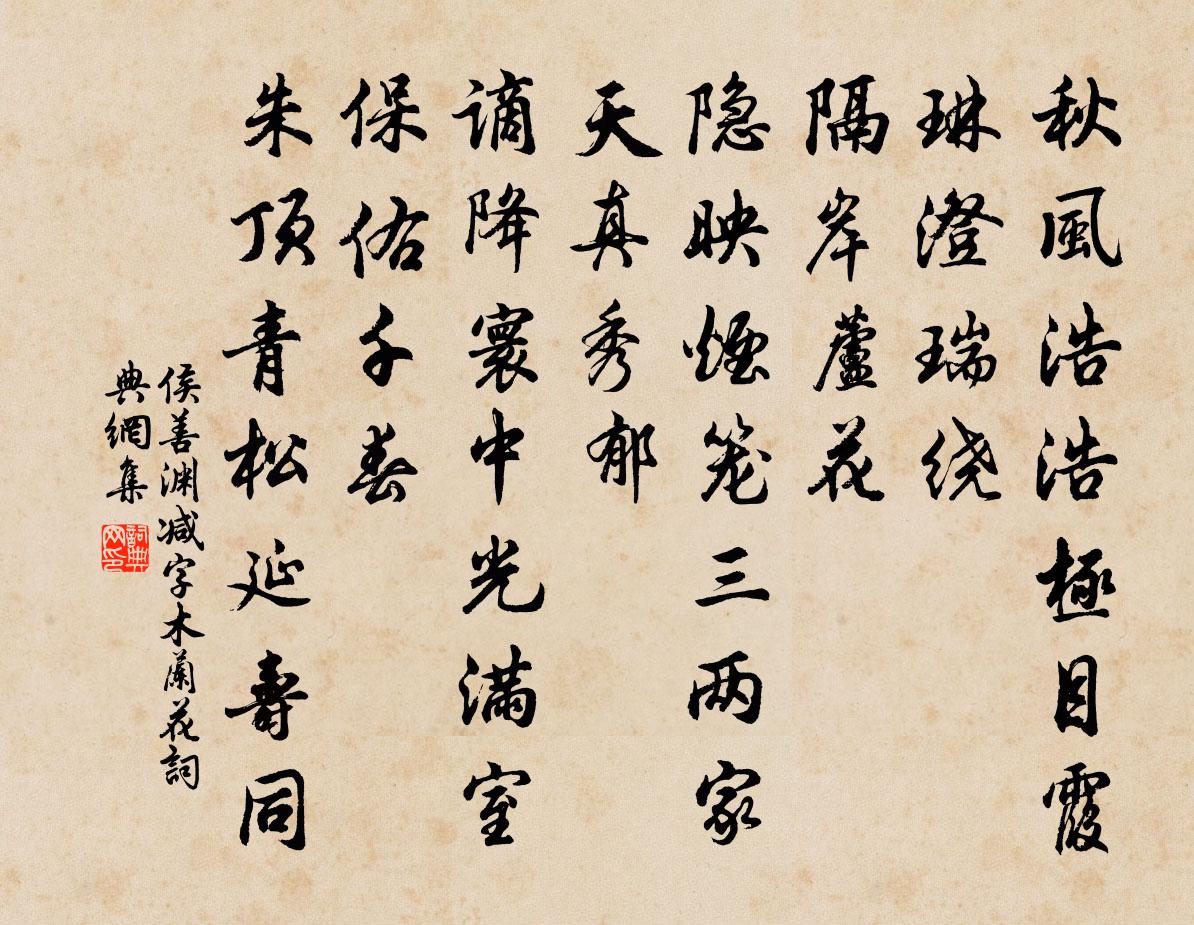 秋風浩浩極目霞
琳澄瑞绕
隔岸蘆花
隐映煙笼三两家
天真秀郁
谪降寰中光满室
保佑千春
朱顶青松延壽同
侯善渊减字木蘭花詞
典網集
詞典网印